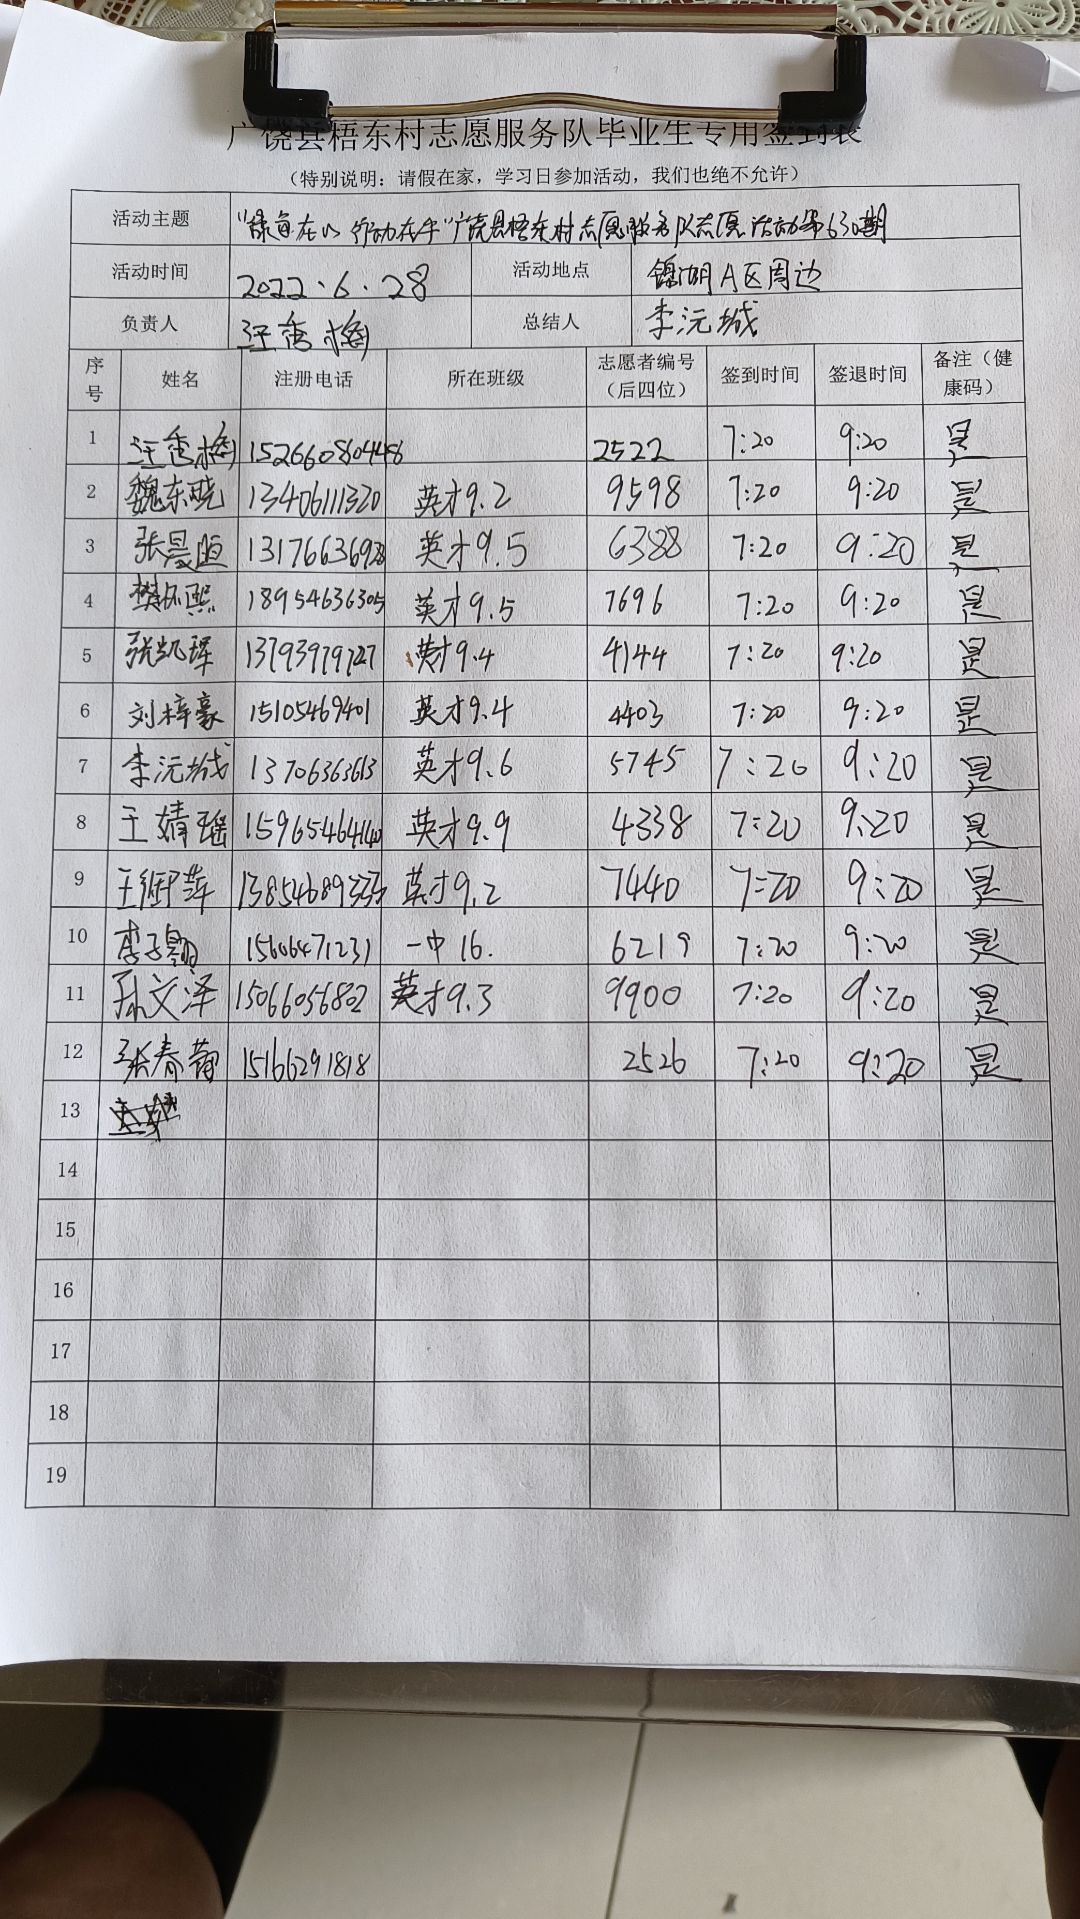 广饶县梧东村志愿服务队毕业生专用签到表
（特别说明：请假在家，学习日参加活动，我们也绝不允许）
活动主题 "绿色在心 行动在手"广饶县梧东村志愿服务队志愿活动第630期
活动时间 2022.6.28 活动地点 锦湖A区周边
负责人 汪秀梅 总结人 李沅城
序号 姓名 注册电话 所在班级 志愿者编号（后四位） 签到时间 签退时间 备注（健康码）
1 汪秀梅 2522 7:20 9:20 是
2 魏东晓 13406111320 英才9.2 9598 7:20 9:20 是
3 张晨恒 英才9.5 6388 7:20 9:20 是
4 樊怀熙 18954636305 英才9.5 7696 7:20 9:20 是
5 张凯珲 13793979727 英才9.4 4144 7:20 9:20 是
6 刘梓豪 15105469401 英才9.4 4403 7:20 9:20 是
7 李沅城 13706363613 英才9.6 5745 7:20 9:20 是
8 王婧瑶 英才9.9 4338 7:20 9:20 是
9 英才9.2 7440 7:20 9:20 是
10 15606471231 一中16. 6219 7:20 9:20 是
11 孙文泽 15066056802 英才9.3 9900 7:20 9:20 是
12 15166291818 2526 7:20 9:20 是
13
14
15
16
17
18
19